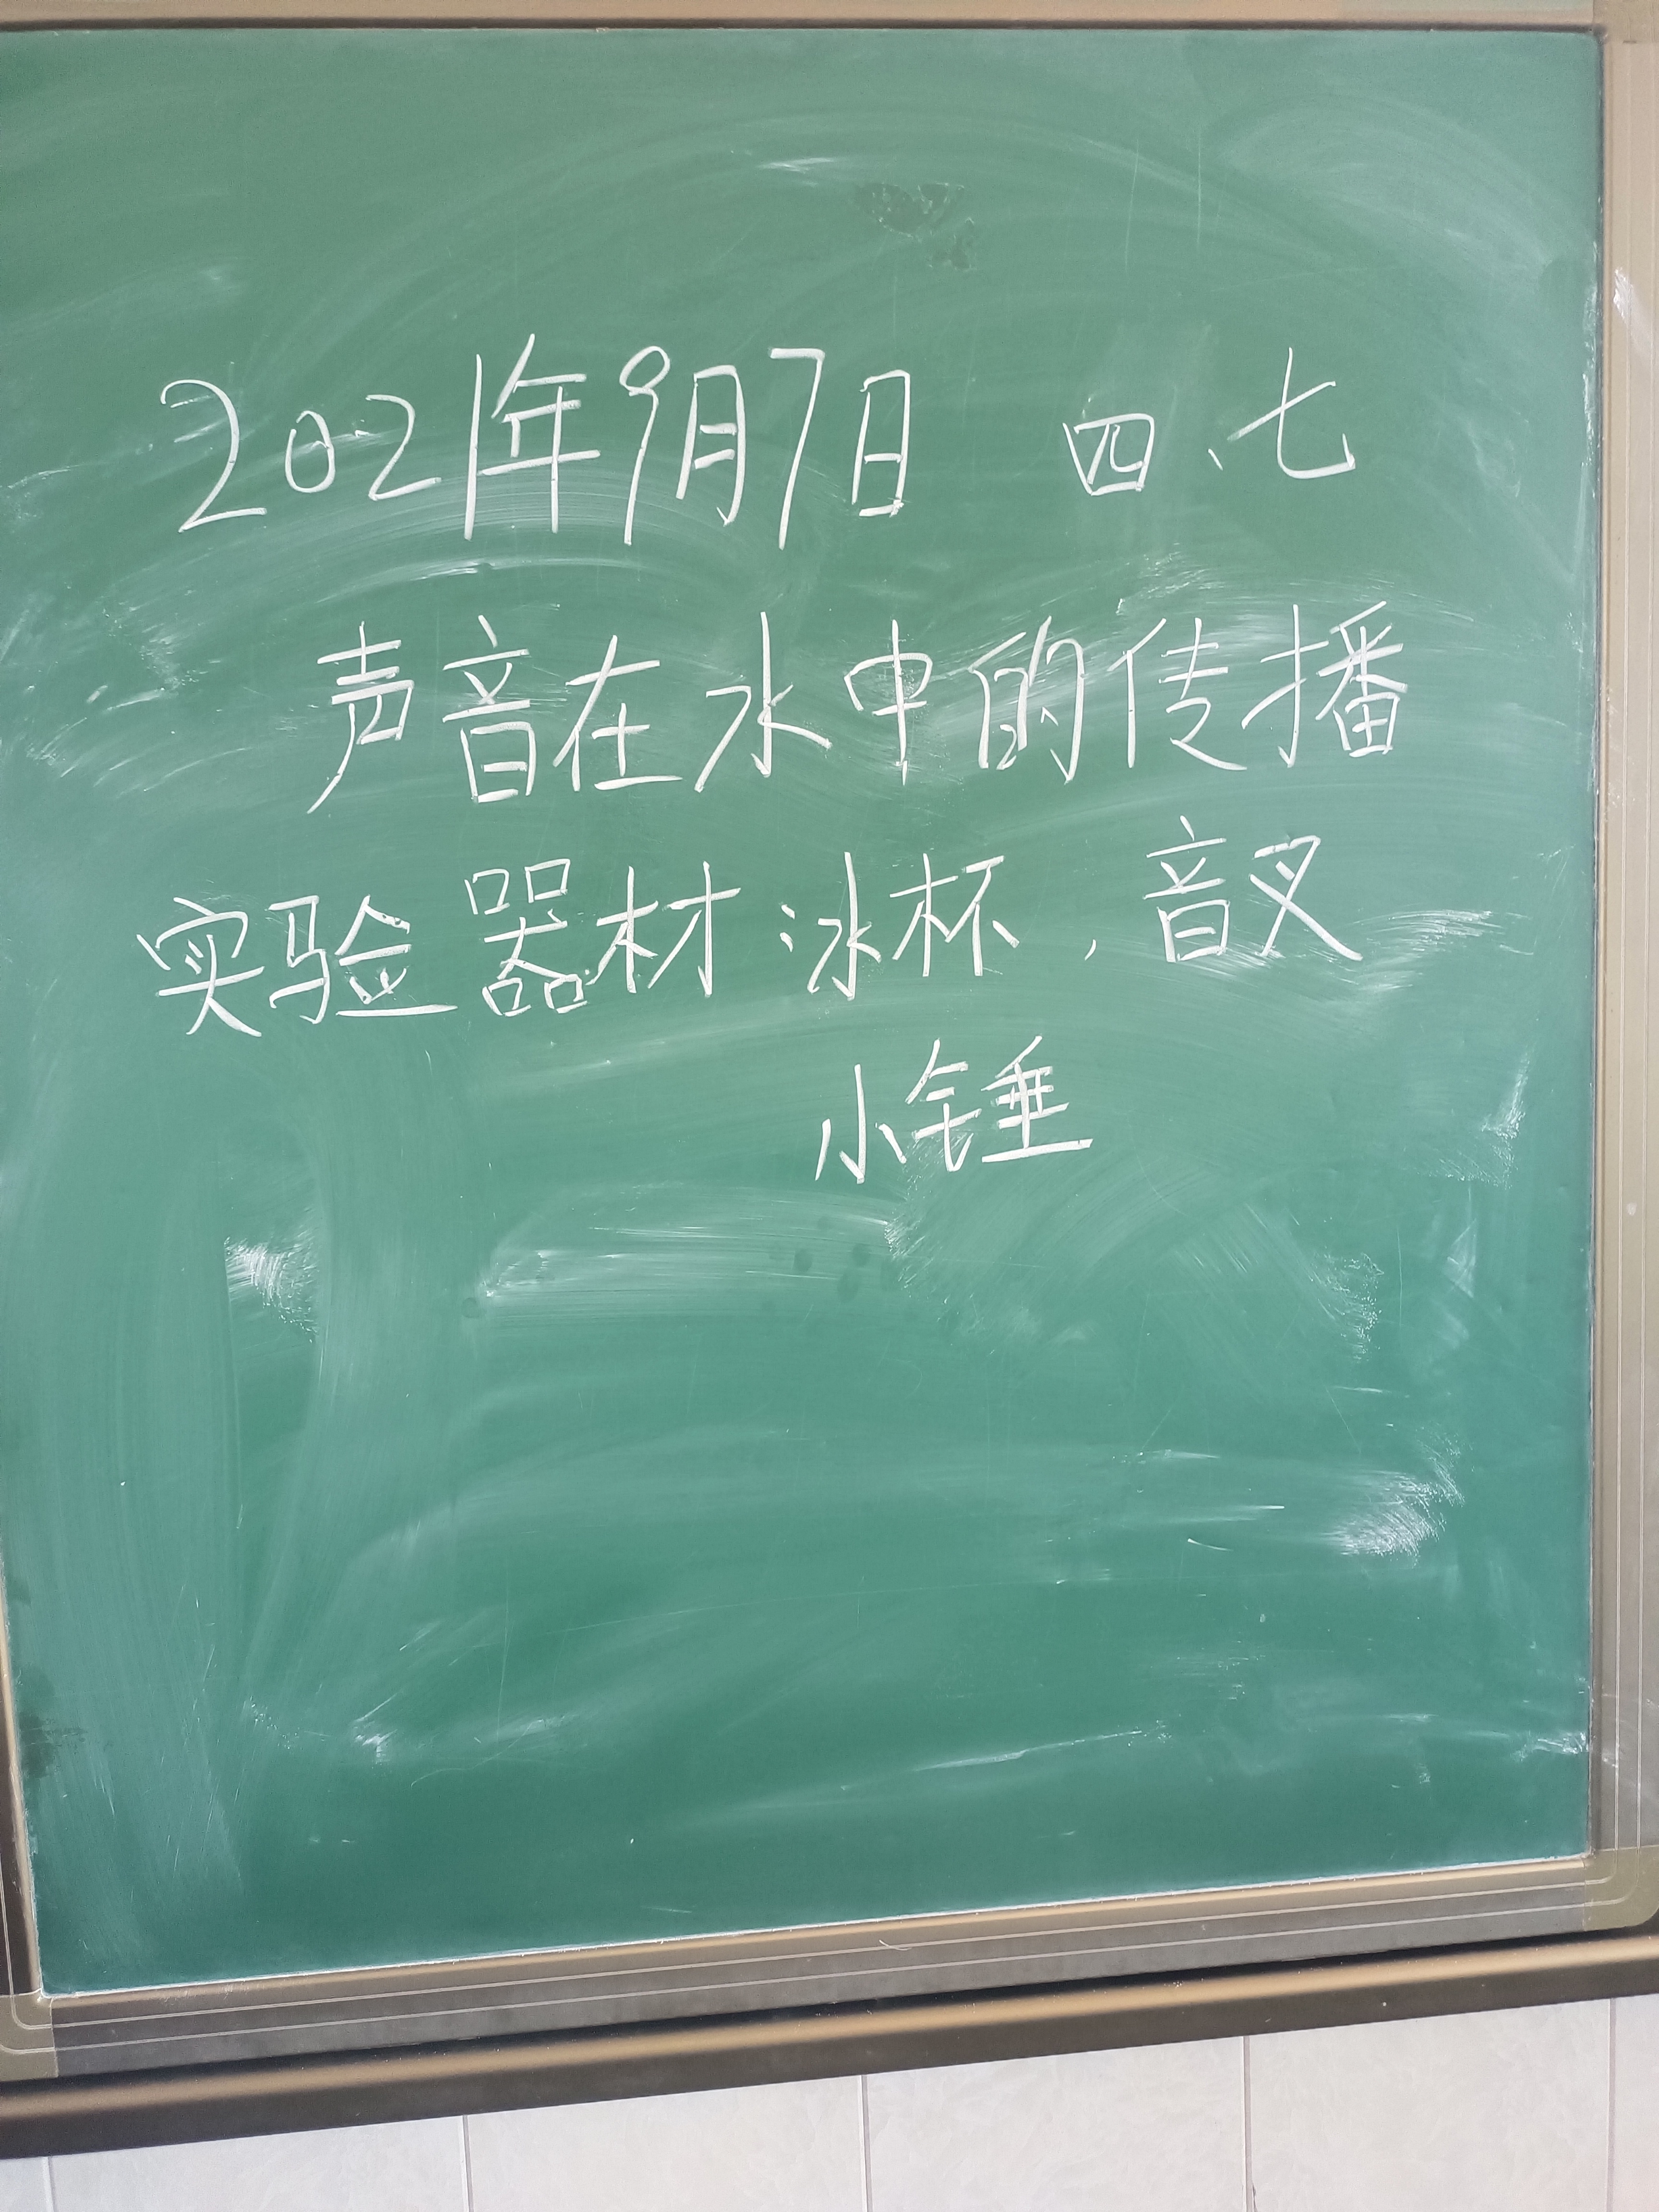 2021年9月7日 四、七
声音在水中的传播
实验器材:水杯,音叉
小锤